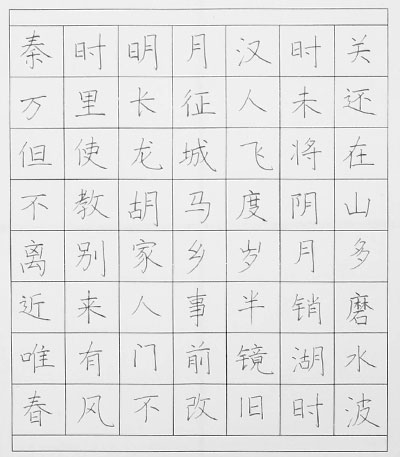 秦时明月汉时关
万里长征人未还
但使龙城飞将在
不教胡马度阴山
离别家乡岁月多
近来人事半销磨
唯有门前镜湖水
春风不改旧时波